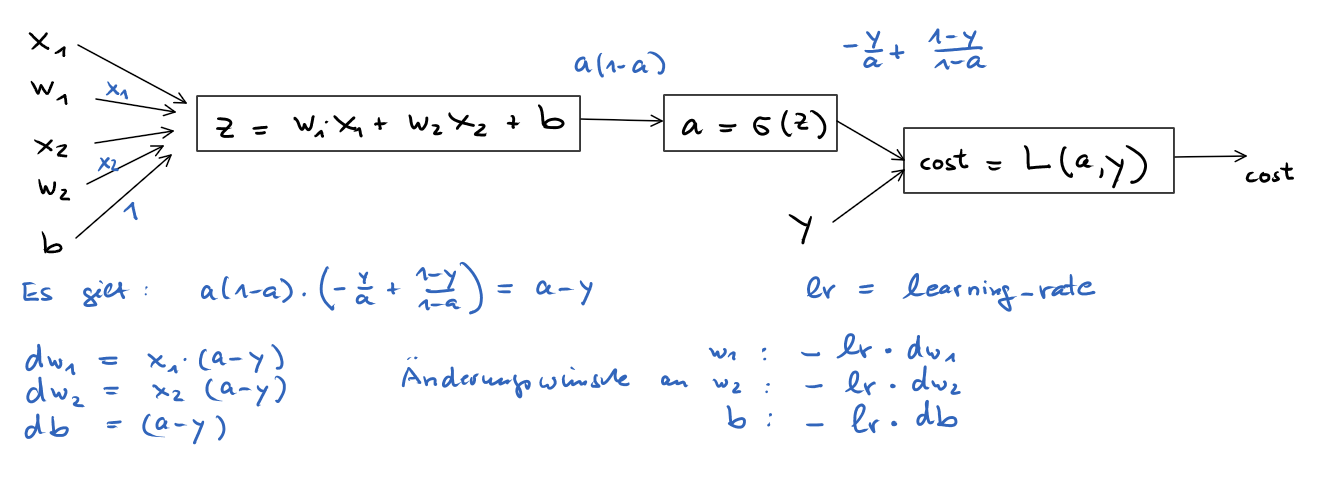 x₁
w₁ x₁
x₂
w₂ x₂
b 1
z = w₁·x₁ + w₂x₂ + b
a(1-a)
a = σ(z)
-y/a + (1-y)/(1-a)
y
cost = L(a,y)
cost
Es gilt: a(1-a)·(-y/a + (1-y)/(1-a)) = a-y
lr = learning-rate
dw₁ = x₁·(a-y)
dw₂ = x₂ (a-y)
db = (a-y)
Änderungswünsche an w₁ : - lr · dw₁
w₂ : - lr · dw₂
b : - lr · db